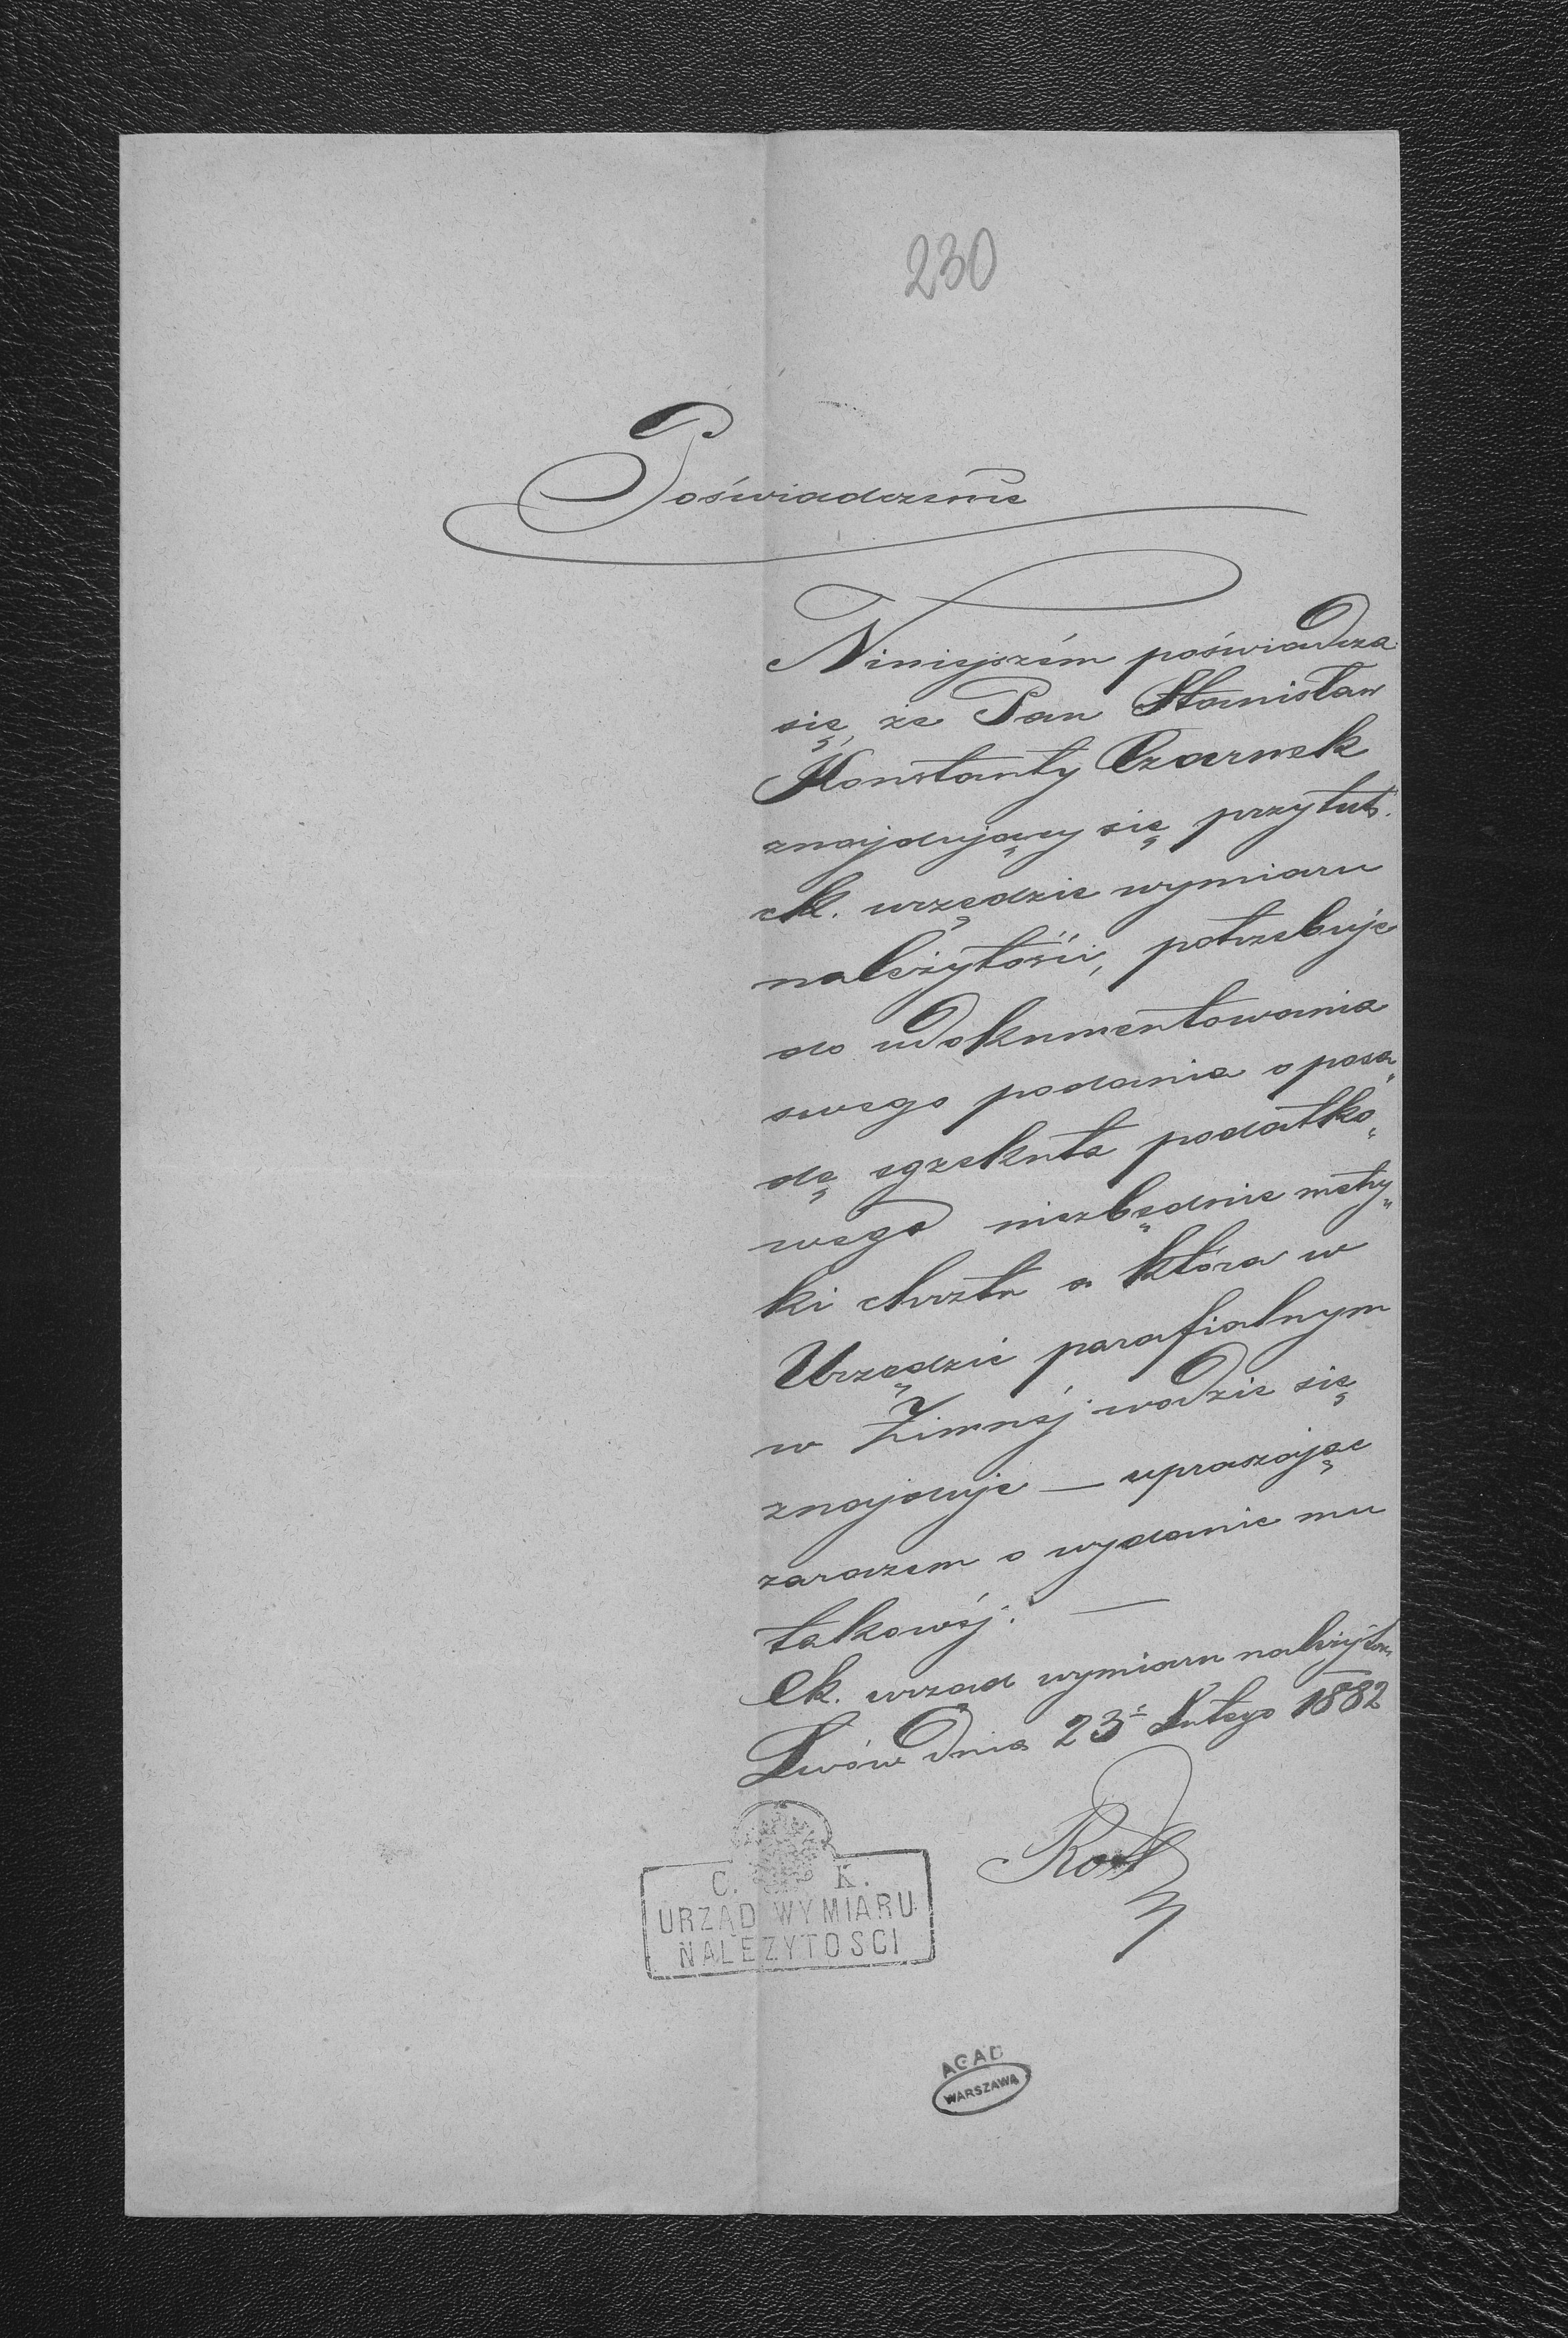 230
Poświadczenie
Niniejszém poświadcza
się, że Pan Stanisław
Konstanty Czarnek
znajdujący się przy tut.
ck. urzędzie wymiaru
należytości, potrzebuje
do udokumentowania
swego podania o posa„
dę egzekuta podatko„
wego niezbędnie metry„
ki chrztu a która w
Urzędzie parafialnym
w Zimnéj wodzie się
znajduje — upraszając
zarazem o wydanie mu
takowéj. —
Ck. urząd wymiaru należytoś.
Lwów dnia 23 Lutego 1882
C. K.
URZĄD WYMIARU
NALEŻYTOSCI
AGAD
WARSZAWA